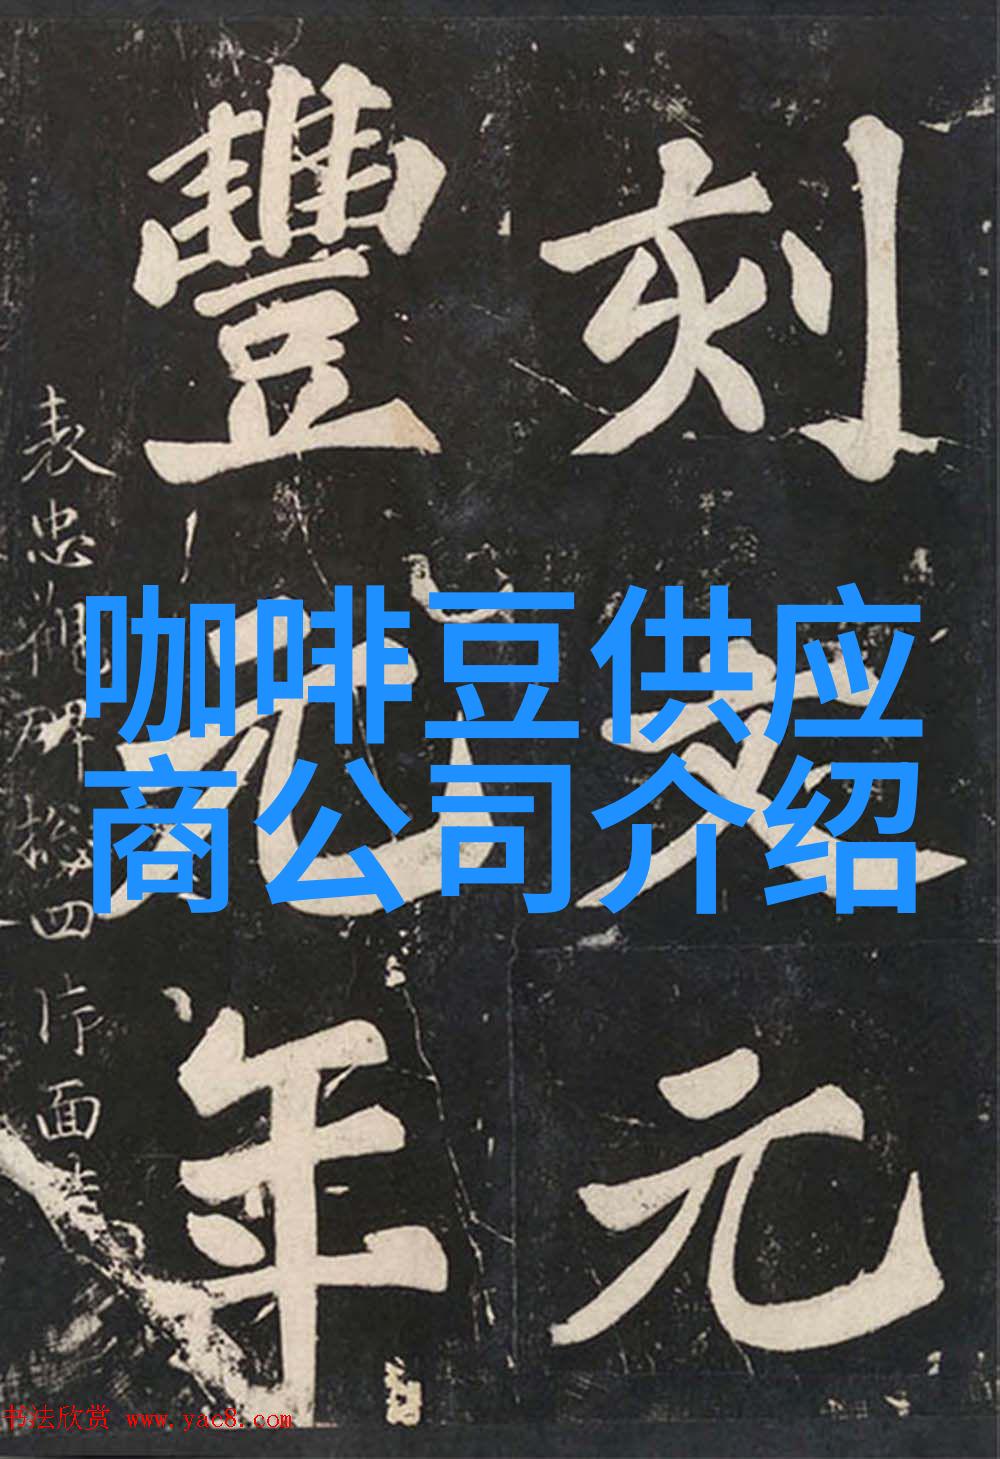 咖啡豆供应
商公司介绍
刻文元
豐元年
表忠觀碑拾四片面
书法欣赏 www.yac8.com